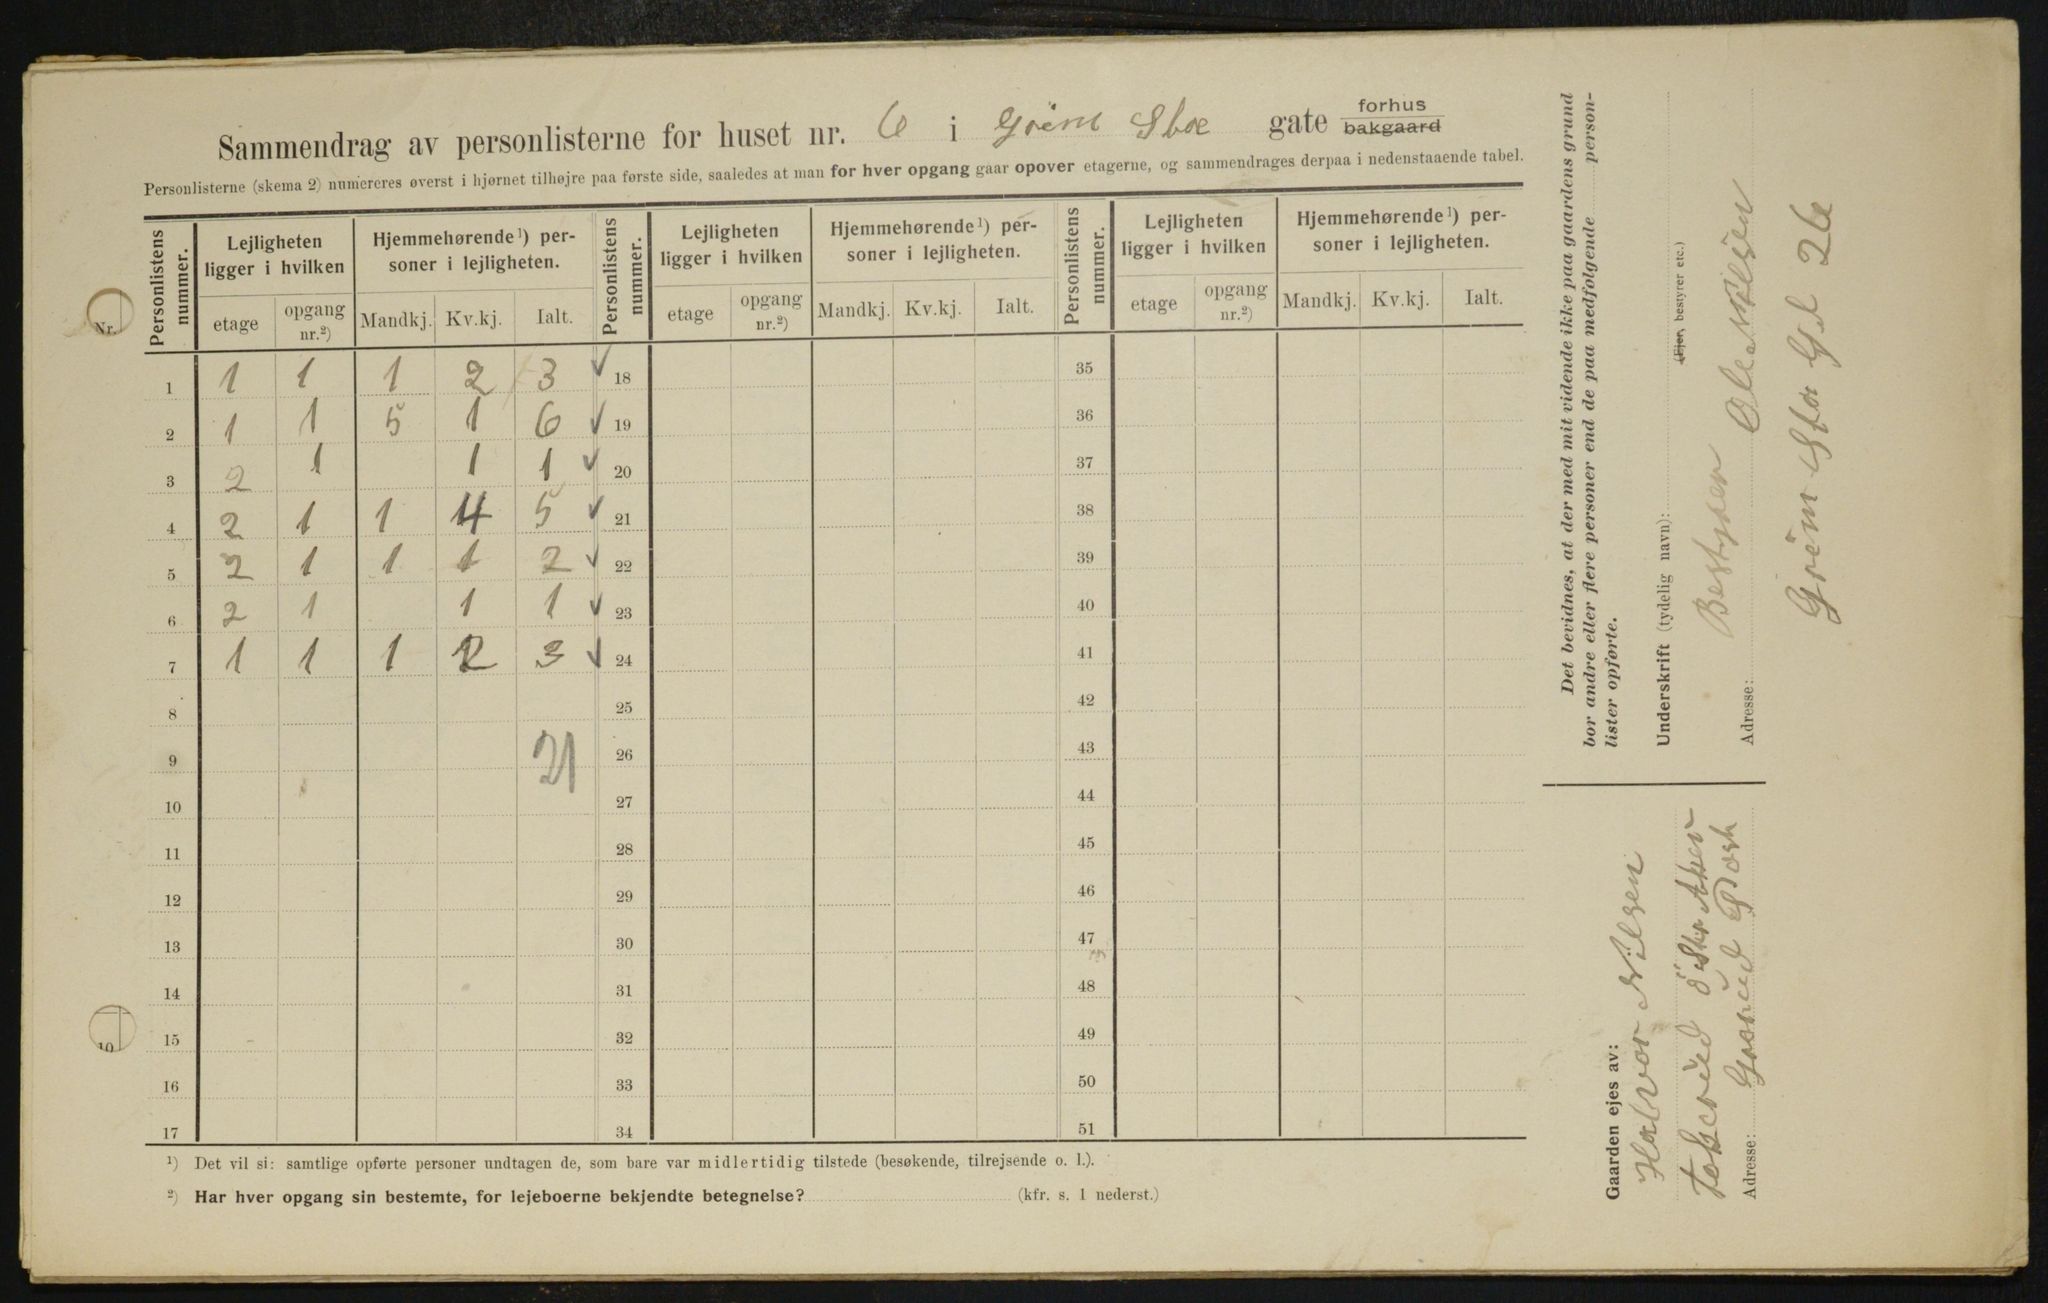 Sammendrag av personlisterne for huset nr. 6 i gate forhus bakgaard
Personlisterne (skema 2) numereres øverst i hjørnet tilhøjre paa første side, saaledes at man for hver opgang gaar opover etagerne, og sammendrages derpaa i nedenstaaende tabel.
Personlistens nummer. Lejligheten ligger i hvilken Hjemmehørende¹) personer i lejligheten. Personlistens nummer. Lejligheten ligger i hvilken Hjemmehørende¹) personer i lejligheten. Personlistens nummer. Lejligheten ligger i hvilken Hjemmehørende¹) personer i lejligheten.
etage opgang nr.²) Mandkj. Kv.kj. Ialt. etage opgang nr.²) Mandkj. Kv.kj. Ialt. etage opgang nr.²) Mandkj. Kv.kj. Ialt.
1 1 1 1 2 3 ✓ 18 35
2 1 1 5 1 6 ✓ 19 36
3 2 1 1 1 ✓ 20 37
4 2 1 1 4 5 ✓ 21 38
5 2 1 1 1 2 ✓ 22 39
6 2 1 1 1 ✓ 23 40
7 1 1 1 2 3 ✓ 24 41
8 25 42
9 21 26 43
10 27 44
11 28 45
12 29 46
13 30 47
14 31 48
15 32 49
16 33 50
17 34 51
¹) Det vil si: samtlige opførte personer undtagen de, som bare var midlertidig tilstede (besøkende, tilrejsende o. l.).
²) Har hver opgang sin bestemte, for lejeboerne bekjendte betegnelse? (kfr. s. 1 nederst.)
Nr.
10
Det bevidnes, at der med mit vidende ikke paa gaardens grund
bor andre eller flere personer end de paa medfolgende person-
lister opførte.
Underskrift (tydelig navn): (Ejer, bestyrer etc.)
Bestyrer Ole Nilsen
Adresse:
26
Gaarden ejes av:
Halvor Nilsen
Adresse: